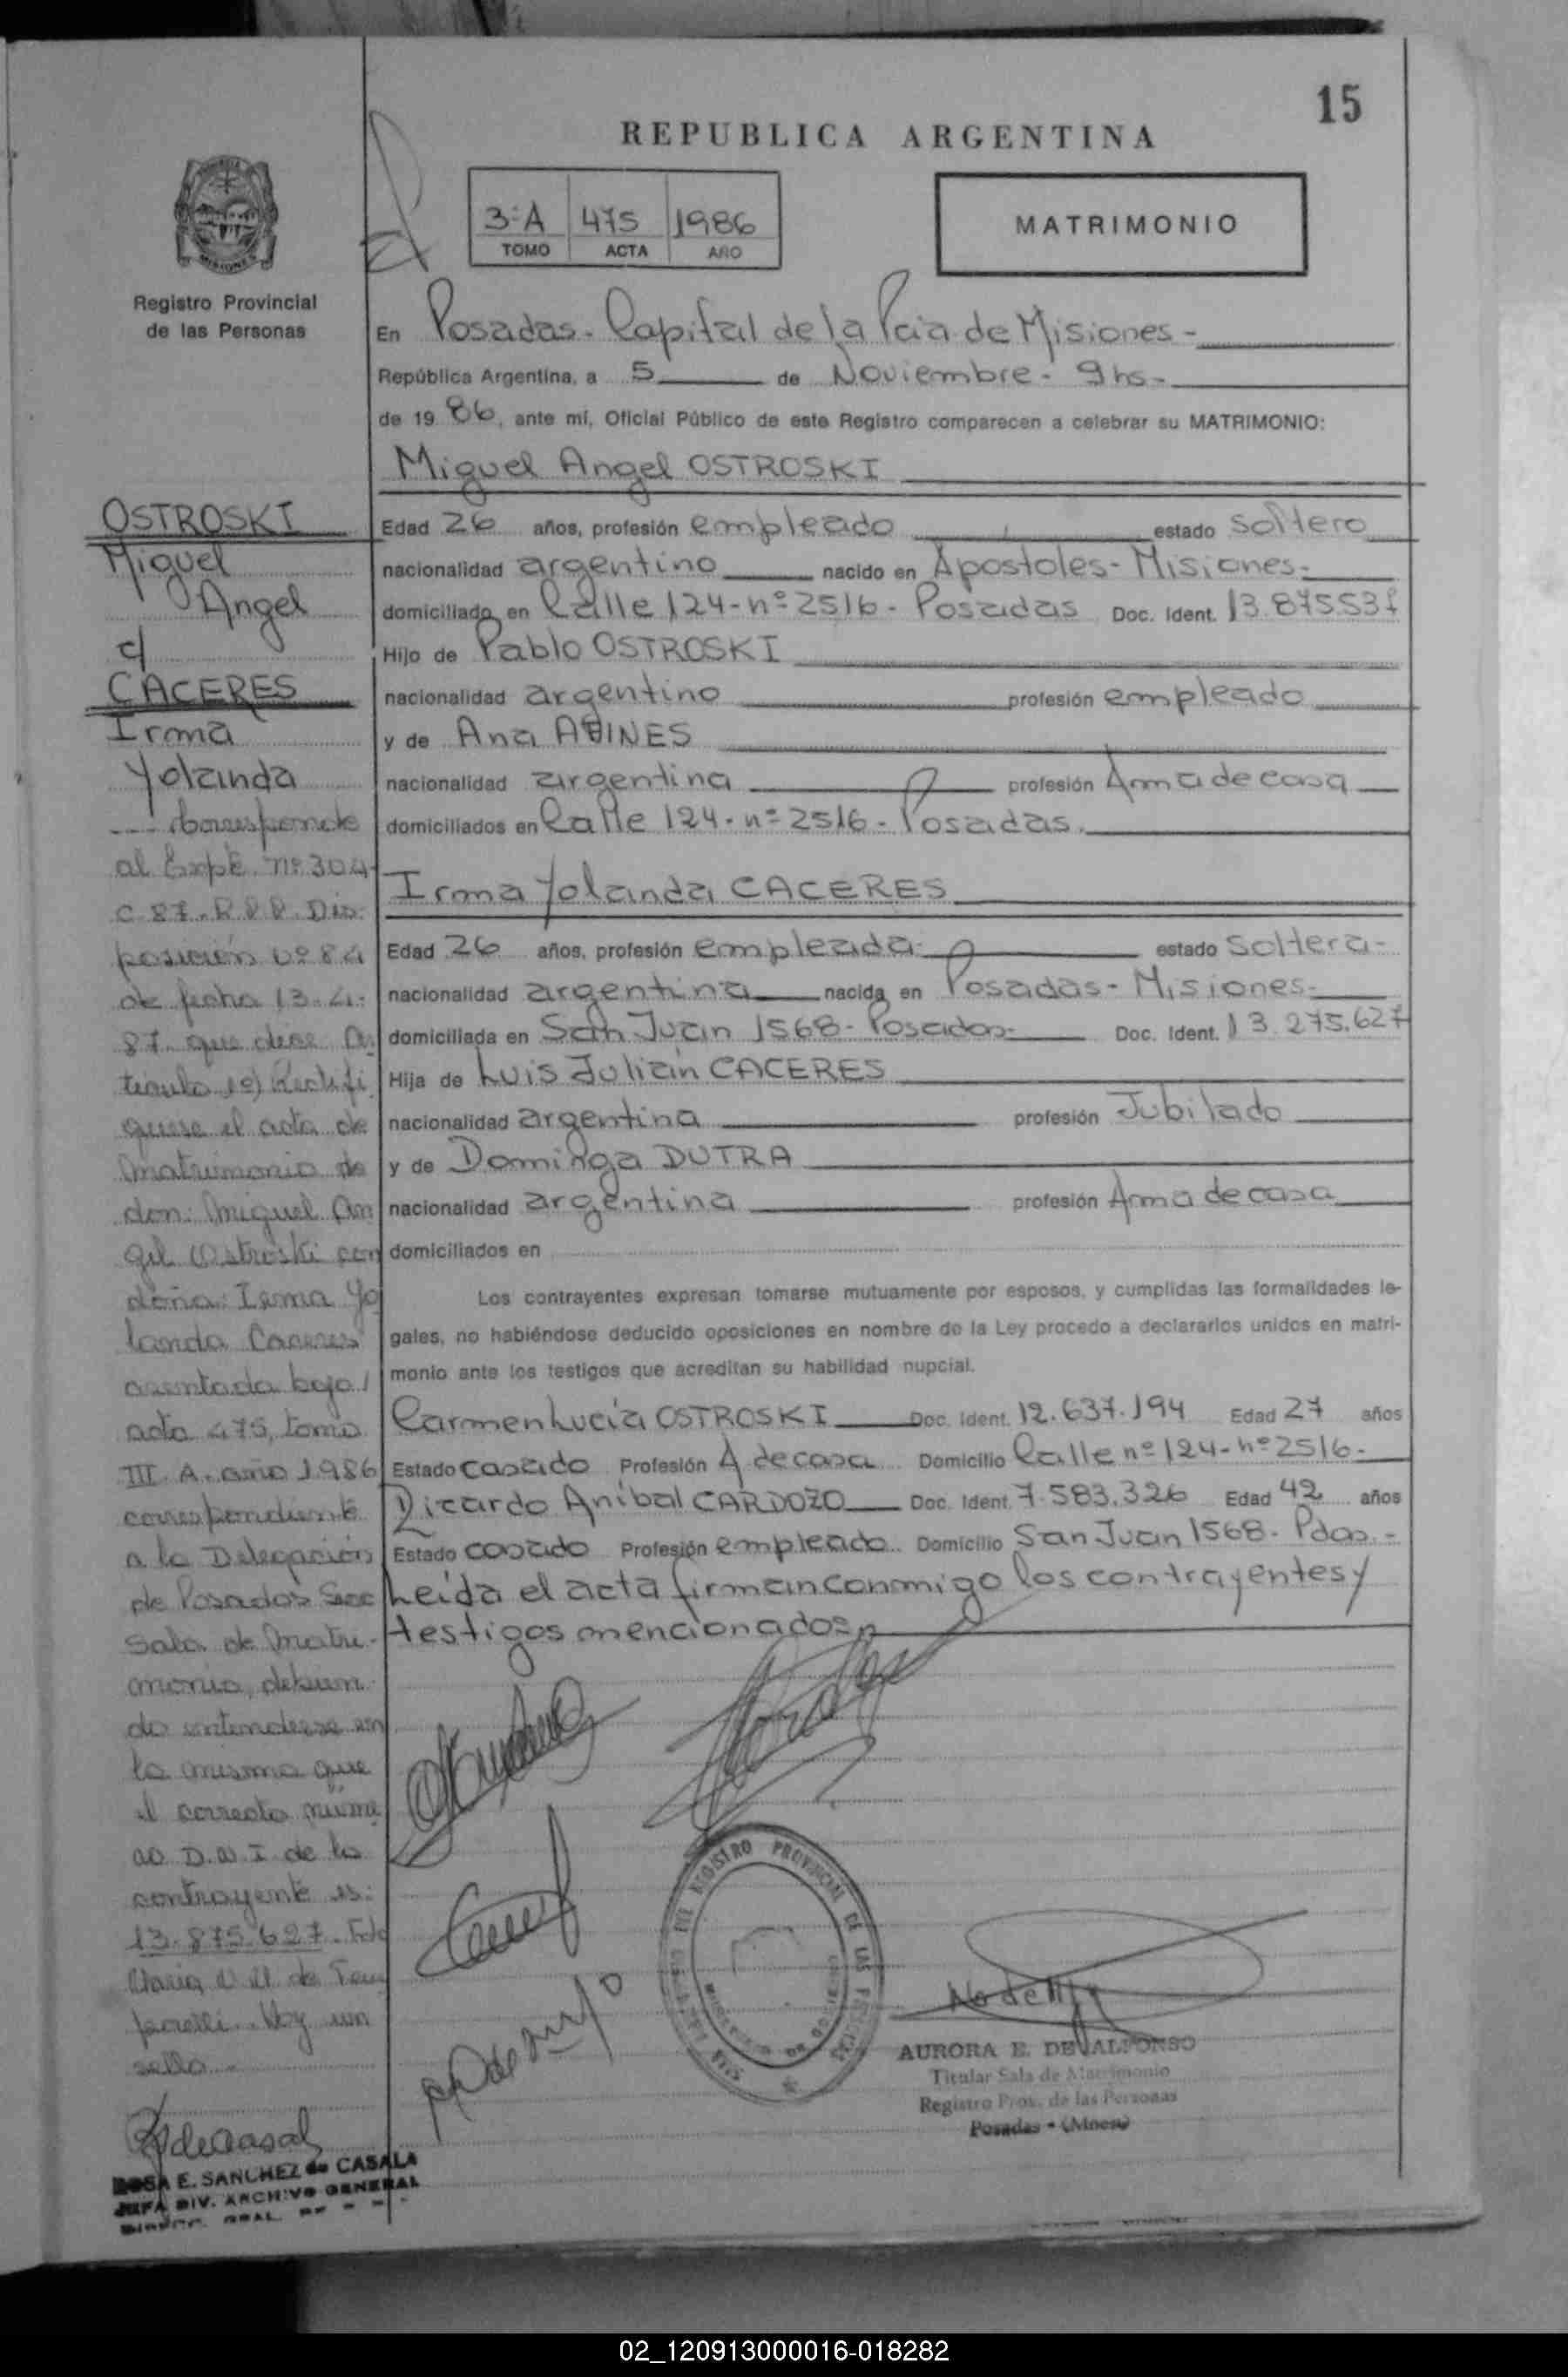 15
REPUBLICA ARGENTINA
3ºA 475 1986
TOMO ACTA AÑO
MATRIMONIO
Registro Provincial
de las Personas
En Posadas- Capital de la Pcia de Misiones-
República Argentina, a 5 de Noviembre- 9hs-
de 19 86, ante mí, Oficial Público de este Registro comparecen a celebrar su MATRIMONIO:
Miguel Angel OSTROSKI
Edad 26 años, profesión empleado estado soltero
nacionalidad argentino nacido en Apostoles- Misiones-
domiciliado en Calle 124-nº2516- Posadas Doc. Ident. 13.875.531
Hijo de Pablo OSTROSKI
nacionalidad argentino profesión empleado
y de Ana
nacionalidad argentina profesión Ama de casa
domiciliados en Calle 124-nº2516- Posadas.
Irma Yolanda CACERES
Edad 26 años, profesión empleada- estado soltera-
nacionalidad argentina nacida en Posadas- Misiones-
domiciliada en San Juan 1568- Posadas- Doc. Ident. 13.275.627
Hija de Luis Julián CACERES
nacionalidad argentina profesión Jubilado
y de Dominga DUTRA
nacionalidad argentina profesión Ama de casa
domiciliados en
Los contrayentes expresan tomarse mutuamente por esposos, y cumplidas las formalidades le-
gales, no habiéndose deducido oposiciones en nombre de la Ley procedo a declararlos unidos en matri-
monio ante los testigos que acreditan su habilidad nupcial.
Carmen Lucía OSTROSKI Doc. Ident. 12.637.194 Edad 27 años
Estado casado Profesión A de casa Domicilio Calle nº124-nº2516-
Ricardo Aníbal CARDOZO Doc. Ident. 7.583.326 Edad 42 años
Estado casado Profesión empleado Domicilio San Juan 1568- Pdas.-
Leída el acta firman conmigo los contrayentes y
testigos mencionados
OSTROSKI
Miguel
Angel
c/
CACERES
Irma
Yolanda
--- Corresponde
al Expte nº 304-
C-87-R.P.P. Dis-
posición nº 84
de fecha 13-4-
87- que dice: Ar
tículo 1º) Rectifi
quese el acta de
matrimonio de
don: Miguel An
gel Ostroski con
doña: Irma Yo
landa Caceres
asentada bajo/
acta 475, tomo
III-A- año 1986
correspondiente
a la Delegación
de Posadas Secc
Sala de Matri-
monio, debien-
do entenderse en
la misma que
el correcto núme
ro D.N.I de la
contrayente es:
13.875.627. Fdo
Maria de
Hay un
sello-
ROSA E. SANCHEZ de CASALA
JEFA DIV. ARCHIVO GENERAL
GRAL.
DEL REGISTRO PROVINCIAL DE LAS PERSONAS
AURORA E. DE ALFONSO
Titular Sala de Matrimonio
Registro Prov. de las Personas
Posadas - (Mnes)
02_120913000016-018282